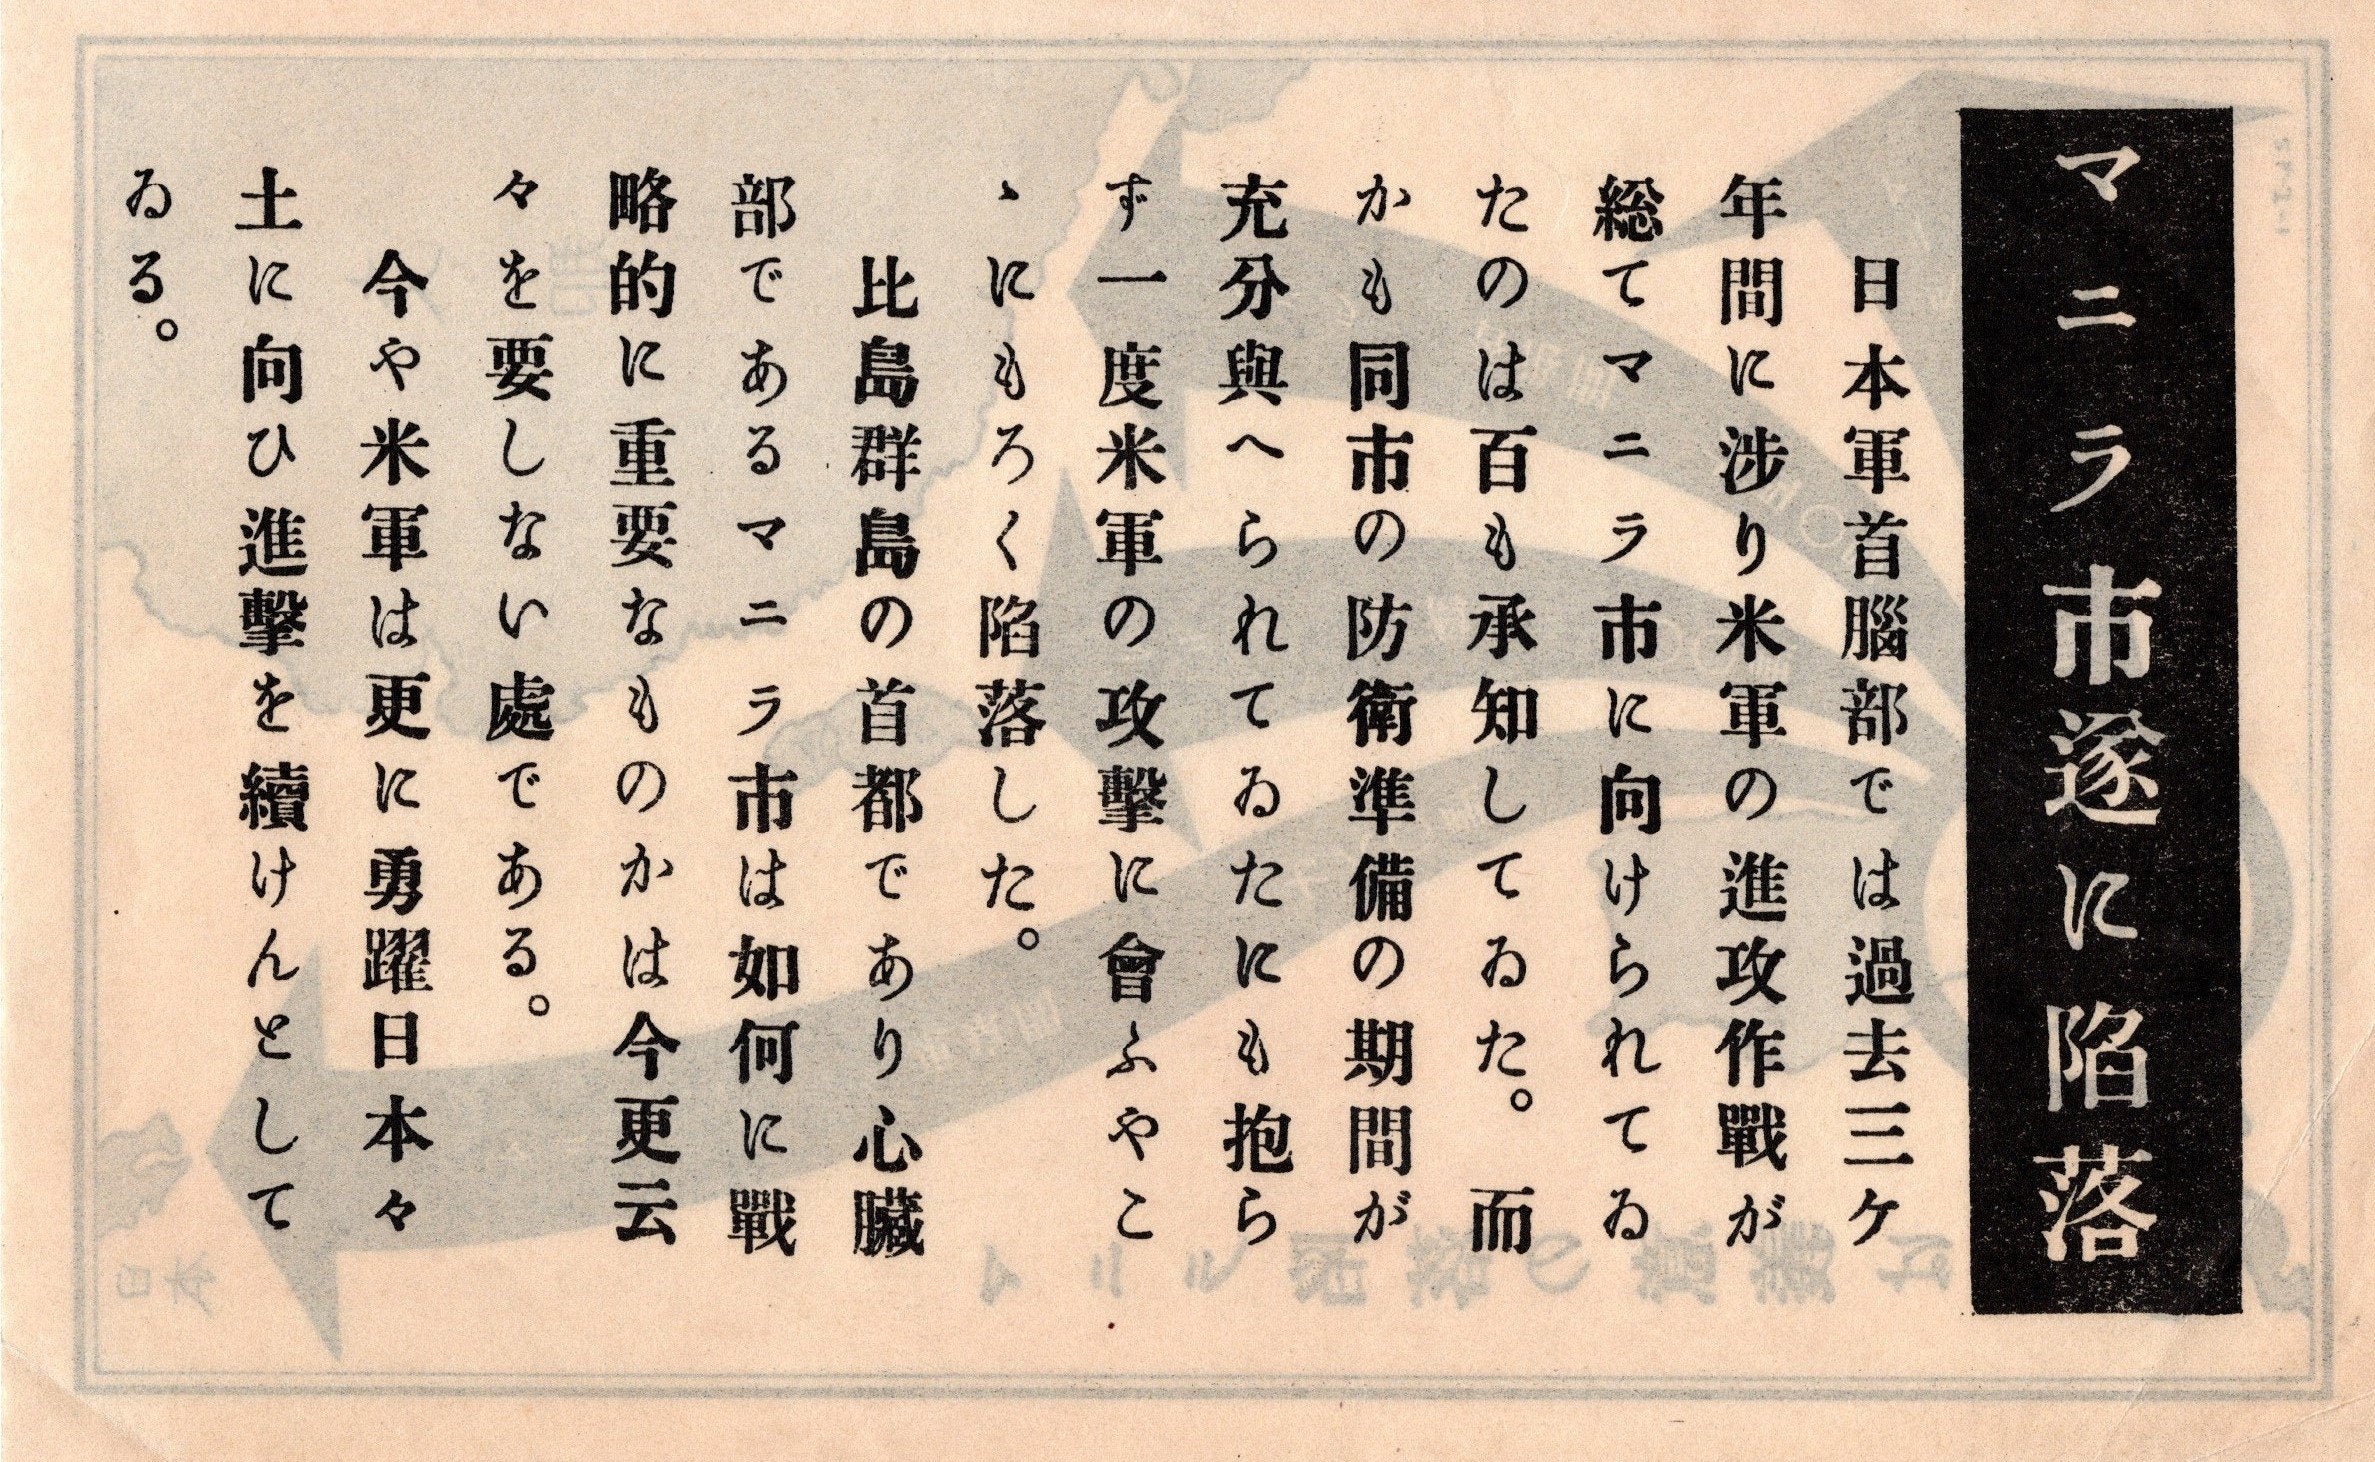 マニラ市遂に陥落
日本軍首腦部では過去三ケ
年間に渉り米軍の進攻作戰が
総てマニラ市に向けられてゐ
たのは百も承知してゐた。而
かも同市の防衛準備の期間が
充分與へられてゐたにも抱ら
ず一度米軍の攻擊に會ふやこ
ゝにもろく陥落した。
比島群島の首都であり心臓
部であるマニラ市は如何に戰
略的に重要なものかは今更云
々を要しない處である。
今や米軍は更に勇躍日本々
土に向ひ進擊を續けんとして
ゐる。